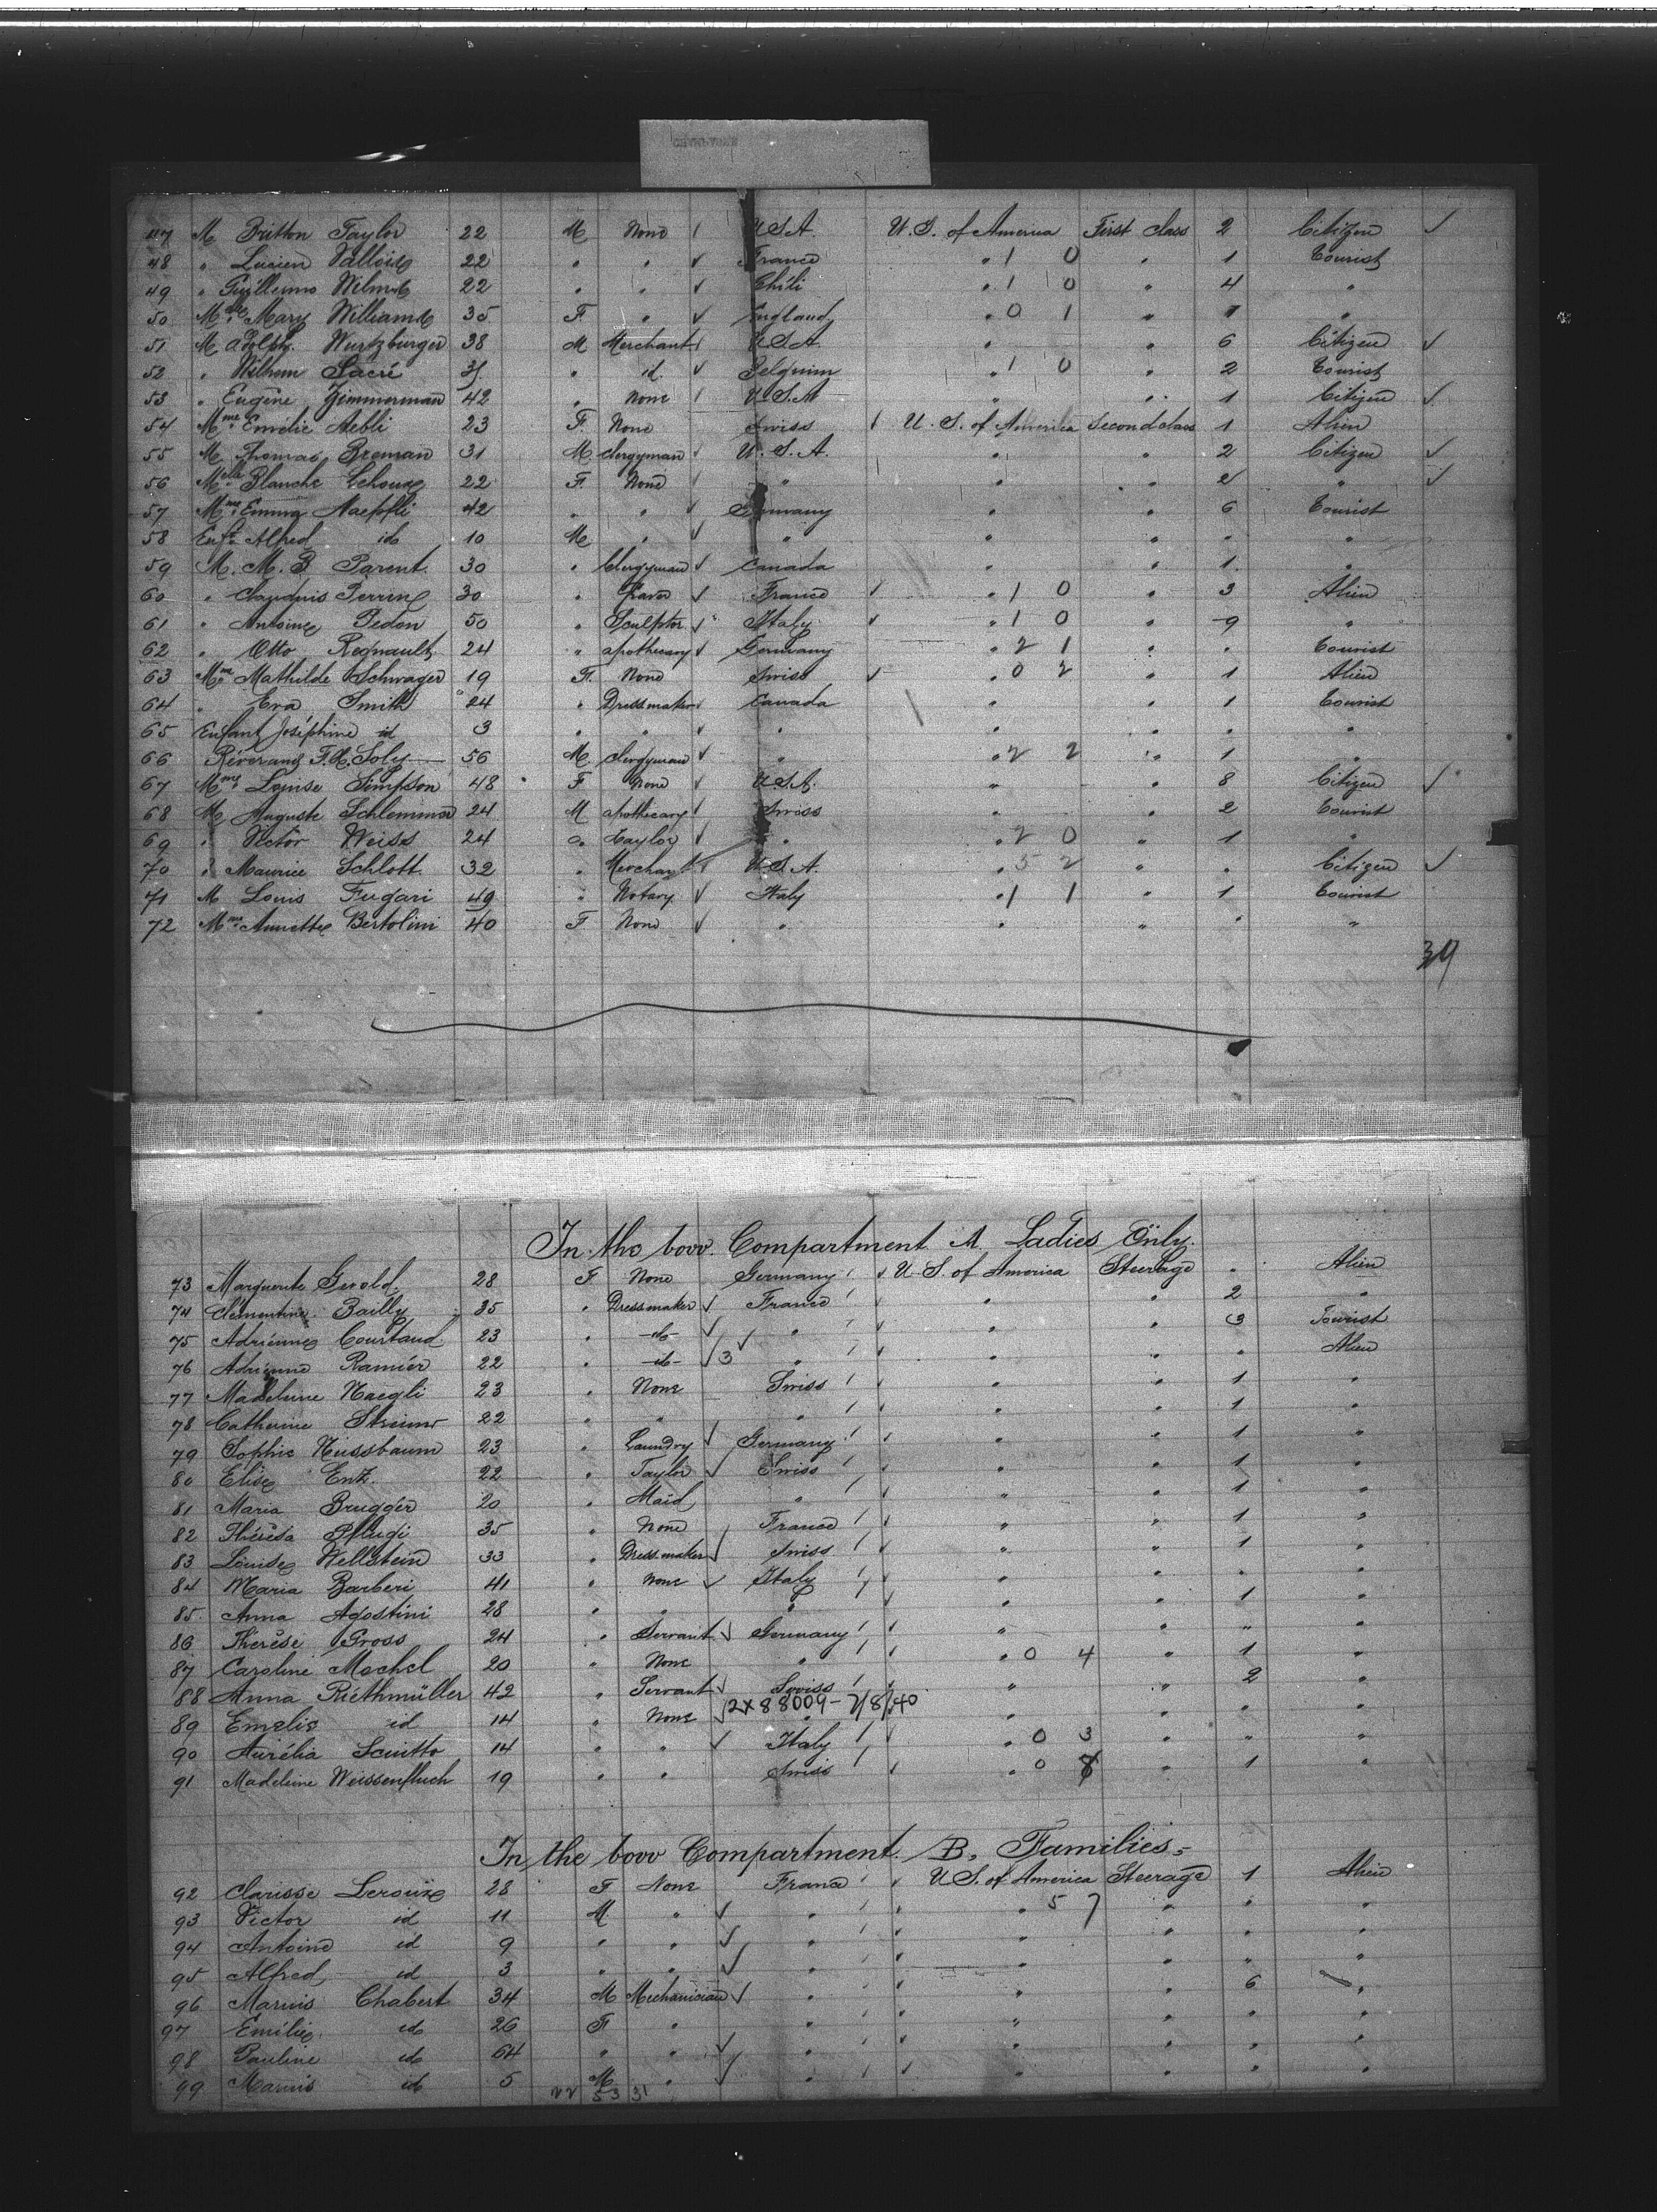 47 M Britton Taylor 22 M None U.S.A. U.S. of America First class 2 Citizen ✓
48 " Lucien Vallois 22 " " ✓ France " 1 0 " 1 Tourist
49 " Guillermo Wilms 22 " " ✓ Chili " 1 0 " 4 "
50 Mme Mary Williams 35 F. " ✓ England " 0 1 " 1 "
51 M Adolph. Wurtzburger 38 M Merchant U.S.A. " " 6 Citizen ✓
52 " Wilhem Sacré " id. ✓ Belgium " 1 0 " 2 Tourist
53 " Eugène Zimmerman 42 " None U.S.A " " 1 Citizen ✓
54 Mme Emélie Aebli 23 F. None Swiss U.S. of America Second class 1 Alien
55 M. Thomas Broman 31 M. clergyman U.S.A. " " 2 Citizen ✓
56 Melle Blanche 22 F. None " " " 2 " ✓
57 Mme Emma Naepfli 42 " " ✓ Germany " " 6 Tourist
58 Enft Alfred id 10 M " ✓ " " " " "
59 M. M. B Parent. 30 " Clergyman ✓ Canada " " 1. "
60 " Perrin 30 " ✓ France ✓ " 1 0 " 3 Alien
61 " Antoine Pedon 50 " Sculptor ✓ Italy ✓ " 1 0 " 9 "
62 " Otto Regnault 24 " apothecary ✓ Germany " 2 1 " " Tourist
63 Mme Mathilde Schwager 19 F. None Swiss ✓ " 0 2 " 1 Alien
64 " Eva Smith 24 " Dressmaker Canada " " 1 Tourist
65 Enfant Joséphine id 3 " " ✓ " " " " "
66 Révérand F.X. Soly 56 M. clergyman ✓ " " 2 2 " 1 "
67 Mme Louise Simpson 48 F None ✓ U.S.A. " " 8 Citizen ✓
68 M Auguste Schlemmer 24 M apothecary ✓ Swiss " " 2 Tourist
69 " Victor Weiss 24 " Taylor ✓ " " 2 0 " 1 "
70 " Maurice Schlott. 32 " Merchant U.S.A. " 5 2 " " Citizen ✓
71 M Louis Fugari 49 " Notary ✓ Italy " 1 1 " 1 Tourist
72 Mme Annette Bertolini 40 F None ✓ " " " " "
39
In the bow Compartment A Ladies Only.
73 Marguerite Gerold 28 F None Germany ✓ U.S. of America Steerage " Alien
74 Clémentine Bailly 35 " Dressmaker ✓ France ✓ " " 2 "
75 Adrienne Courtaud 23 " id ✓ " ✓ " " 3 Tourist
76 Adrienne Ramiér 22 " id ✓ 3 ✓ " ✓ " " " Alien
77 Madeleine Naegli 23 " None Swiss ✓ " " 1 "
78 Catherine 22 " " " ✓ " " 1 "
79 Sophie Nussbaum 23 " Laundry ✓ Germany ✓ " " 1 "
80 Elise Enz. 22 " Taylor ✓ Swiss ✓ " " 1 "
81 Maria Brugger 20 " Maid " ✓ " " 1 "
82 Thérèsa Pflugi 35 " None France ✓ " " 1 "
83 Louise Wellstein 33 " Dressmaker ✓ Swiss ✓ " " 1 "
84 Maria Barberi 41 " None ✓ Italy ✓ " " " "
85. Anna Agostini 28 " " " ✓ " " 1 "
86 Thérèse Gross 24 " Servant ✓ Germany ✓ " " " "
87 Caroline Mochel 20 " None " ✓ " 0 4 " 1 "
88 Anna Riethmüller 42 " Servant ✓ Swiss ✓ " " 2 "
89 Emelie id 14 " None ✓ 2X88009-7/8/40 " " " "
90 Aurélia Scuitto 14 " " ✓ Italy ✓ " 0 3 " " "
91 Madeleine Weissenfluch 19 " " Swiss ✓ " 0 8 " 1 "
In the bow Compartment. B. Families.
92 Clarisse Leroux 28 F None France ✓ U.S. of America Steerage 1 Alien
93 Victor id 11 M. " ✓ " ✓ " 5 7 " " "
94 Antoine id 9 " " ✓ " ✓ " " " "
95 Alfred id 3 " " ✓ " ✓ " " " "
96 Marius Chabert 34 M Mechanician ✓ " ✓ " " 6 "
97 Emélie id 26 F " " ✓ " " " "
98 Pauline id 64 " " ✓ " ✓ " " " "
99 Marius id 5 M " ✓ " ✓ " " " "
22 53 31